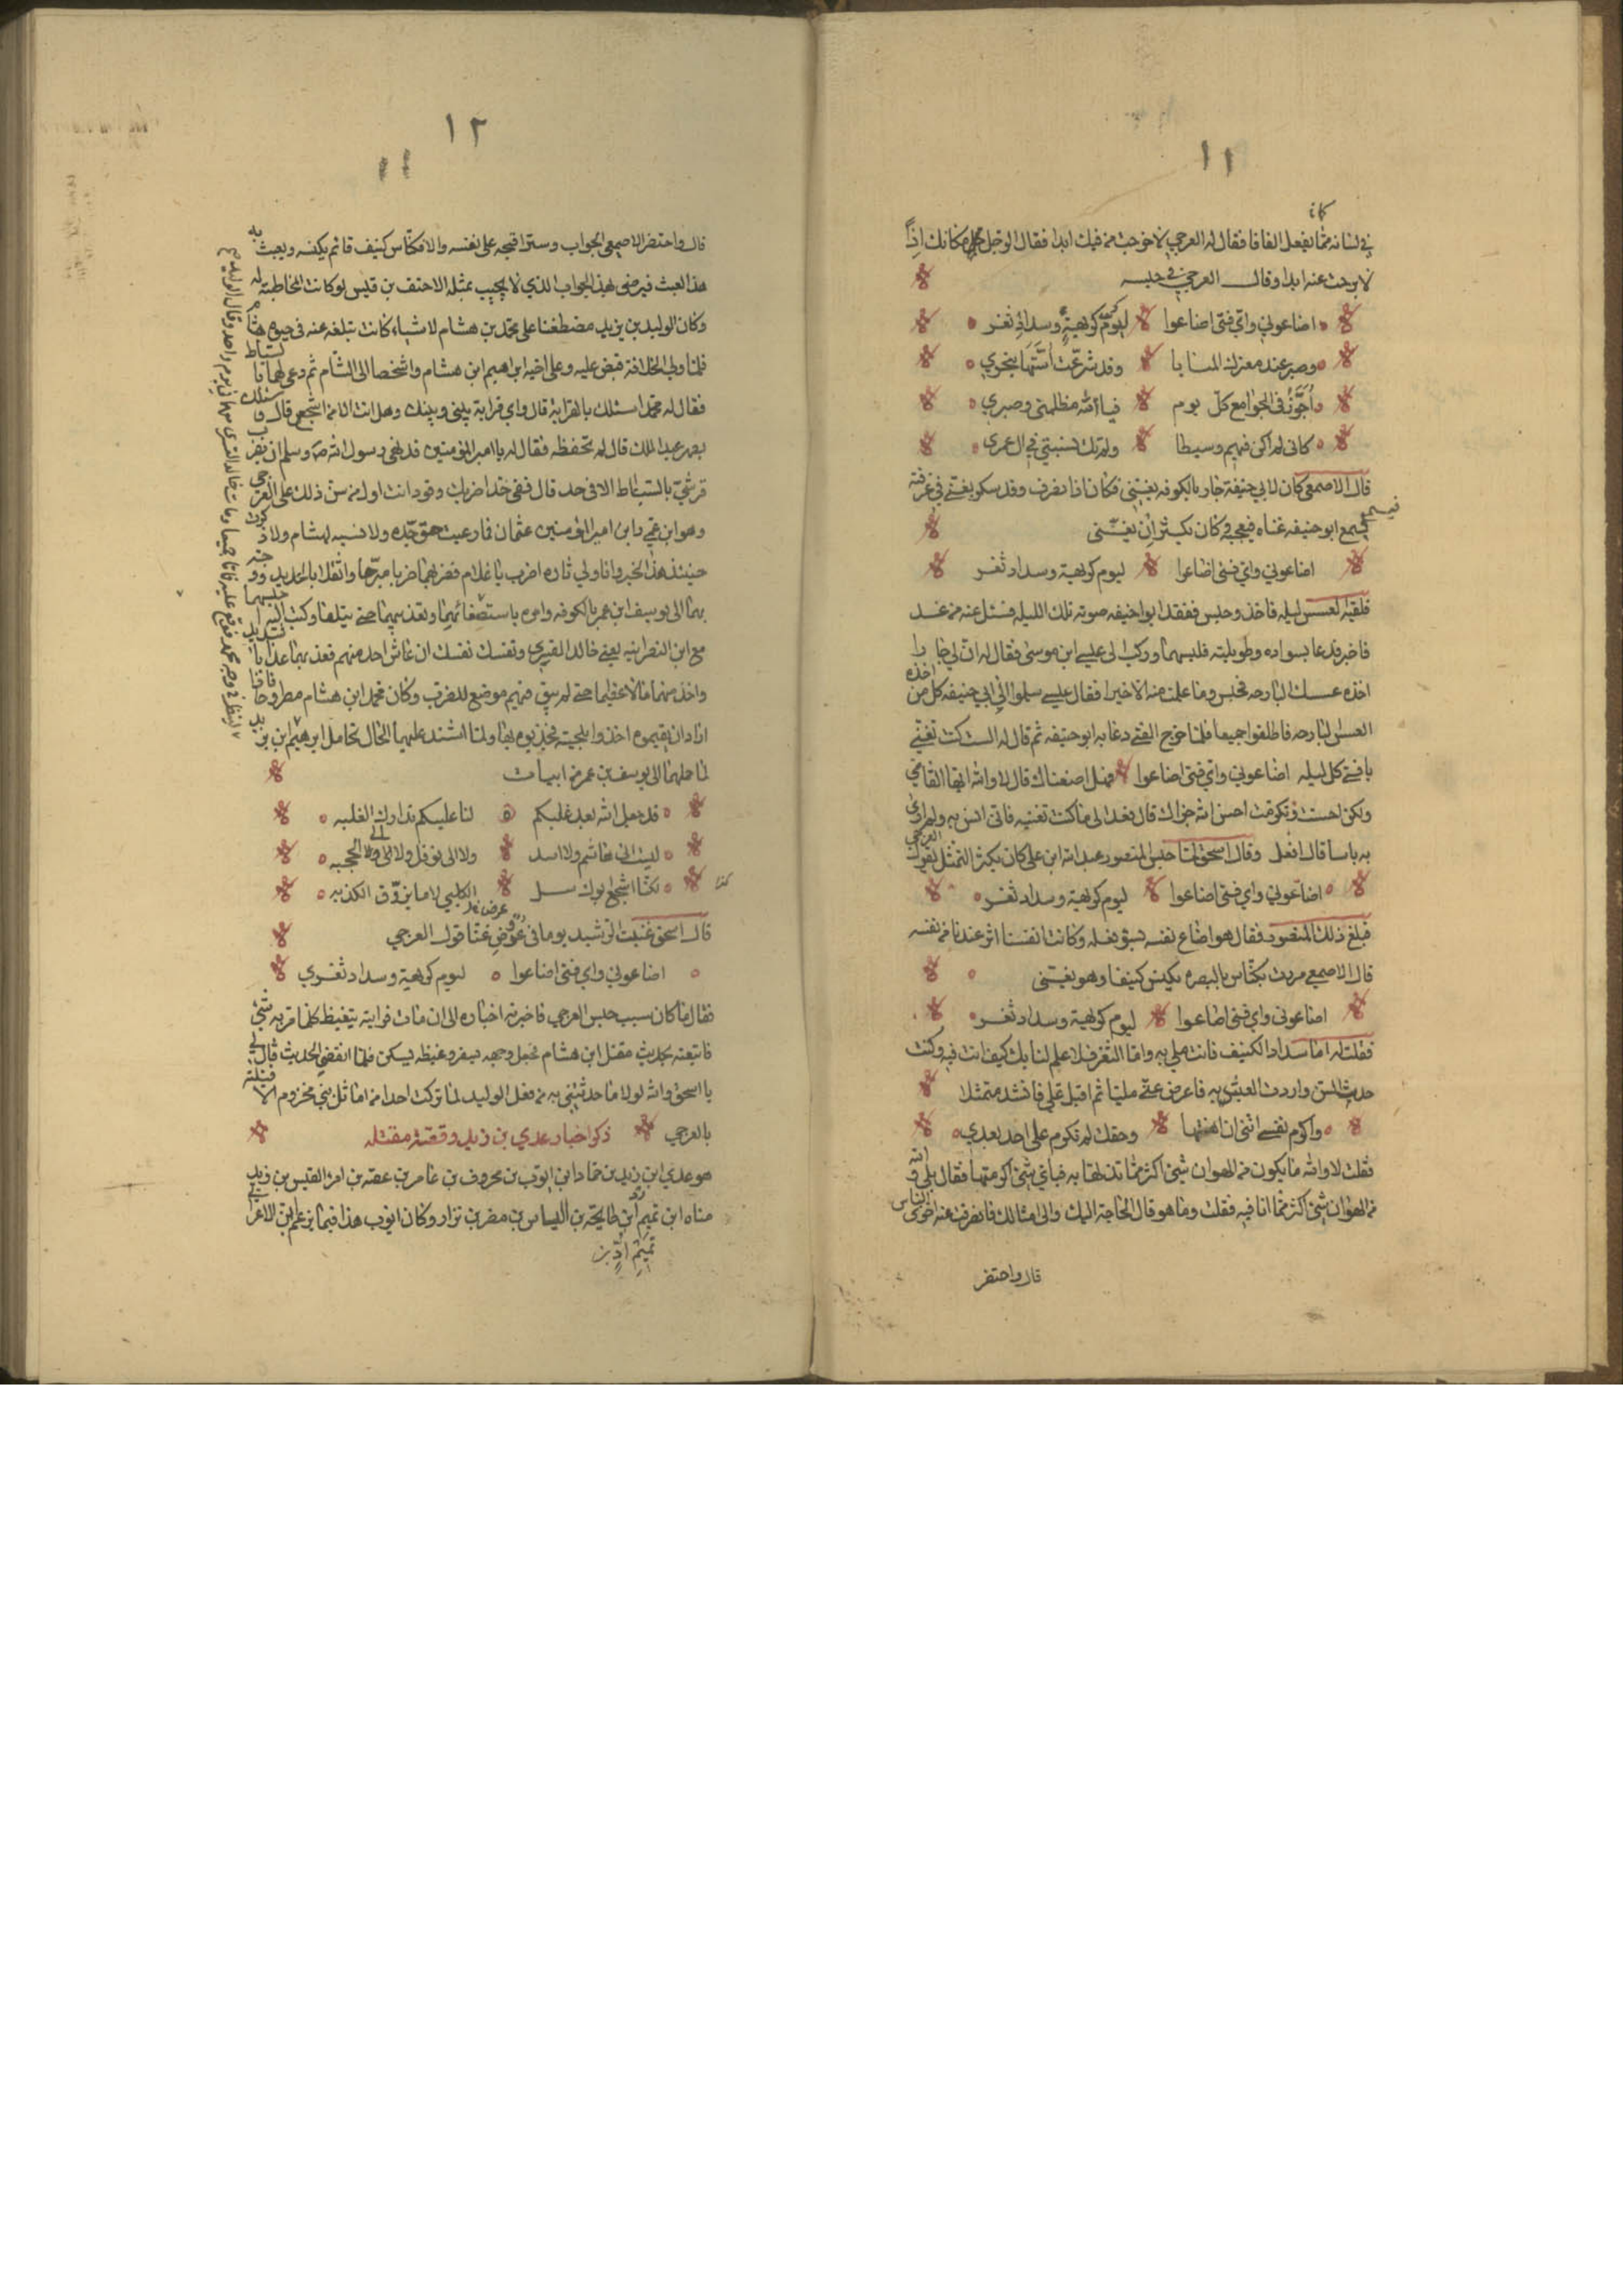 ١١
كان
في لسانه مما يفعل الفافا فقال له العرجي لا خرجت من فيك ابدا فقال الرجل مكانك اذاً
لا برحت عنه ابدا وقال العرجي في حبسه
اضاعوني واي فتى اضاعوا ليوم كريهة وسداد ثغر
وصبر عند معترك المنايا وقد شرعت اسنتها بنحري
اجرر في الجوامع كل يوم فيا لله مظلمتي وصبري
كاني لم اكن فيهم وسيطا ولم تك نسبتي في ال عمرى
قال الاصمعي كان لابي حنيفة جار بالكوفه يغني فكان اذا انصرف وقد سكر يغني في غرفته
فيسمع ابو حنيفه غناه فيعجبه وكان يكثر ان يغني
اضاعوني واي فتى اضاعوا ليوم كريهة وسداد ثغر
فلقيه العسس ليله فاخذ وحبس ففقد ابو حنيفه صوته تلك الليله فسئل عنه من غد
فاخبر فدعا بسواده وطويلته فلبسهما وركب الى عيسى ابن موسى فقال له ان لي جارا
اخذه عسسك البارحه فحبس وما علمت منه الا خيرا فقال عيسى سلموا الى ابي حنيفه كل من اخذه
العسس البارحه فاطلقوا جميعا فلما خرج الفتى دعا به ابو حنيفه ثم قال له الست كنت تغني
يا فتى كل ليله اضاعوني واي فتى اضاعوا فهل اضعناك قال لا والله ايها القاضي
ولكن احسنت وتكرمت احسن الله جزاك قال فعد الى ما كنت تغنيه فاني انس به ولم ارى
به باسا قال افعل وقال اسحق لما حبس المنصور عبد الله ابن علي كان يكثر التمثل بقول العرجي
اضاعوني واي فتى اضاعوا ليوم كريهة وسداد ثغر
فبلغ ذلك المنصور فقال هو اضاع نفسه بسوء فعله وكانت انفسنا اثر عندنا من نفسه
قال الاصمعي مررت بكناس بالبصره يكنس كنيفا وهو يغني
اضاعوني واي فتى اضاعوا ليوم كريهة وسداد ثغر
فقلت له اما سداد الكنيف فانت ملي به واما الثغر فلا علم لنا بك كيف انت فيه وكنت
حديث السن واردت العبث به فاعرض عني مليا ثم اقبل علي فانشد متمثلا
واكرم نفسي انني ان اهنتها وحقك لم تكرم على احد بعدي
فقلت لا والله ما يكون من الهوان شيئ اكثر مما تذلها به فباي شيئ اكرمتها فقال بلى والله
من الهوان شيئ اكثر مما انا فيه فقلت وما هو قال الحاجة اليك والى امثالك فانصرفت عنه اخزى الناس
قال واحتضر
١٢
قال واحتضر الاصمعي الجواب وستر اقبحه على نفسه والا فكناس كنيف قائم يكنسه ويعبث به
هذا العبث فيرضى بهذا الجواب الذي لا يجيب بمثله الاحنف بن قيس لو كانت المخاطبة له
وكان الوليد بن يزيد مضطغنا على محمد بن هشام لاشياء كانت تبلغه عنه في حيوة هشام
فلما ولي الخلافة قبض عليه وعلى اخيه ابراهيم ابن هشام واشخصا الى الشام ثم دعى لهما بالسياط
فقال له محمد اسئلك بالقرابة قال واي قرابة بيني وبينك وهل انت الا من اشجع قال فاسئلك
بصهر عبد الملك قال لم تحفظه فقال له يا امير المؤمنين قد نهى رسول الله ص وسلم ان يضرب
قرشي بالسياط الا في حد قال ففي حد اضربك وقود انت اول من سن ذلك على العرجي
وهو ابن عمي وابن امير المؤمنين عثمان فما رعيت حق جده ولا نسبه لهشام ولا ذكرت
حينئذ هذا الخبر وانا ولي ثاره اضرب يا غلام فضربهما ضربا مبرحا واثقلا بالحديد ووجه
بهما الى يوسف ابن عمر بالكوفه وامره باستصفائهما وتعذيبهما حتى يتلفا وكتب اليه احبسهما
مع ابن النصرانيه يعني خالد القسري ونفسك نفسك ان عاش احد منهم فعذبهما عذابا شديدا
واخذ منهما مالا عظيما حتى لم يبق فيهم موضع للضرب وكان محمد ابن هشام مطروحا فاذا
ارادوا ان يقيموه اخذوا بلحيته فجذبوه بها ولما اشتدت عليهما الحال تحامل ابرهيم
لما حملهما الى يوسف بن عمر من ابيات
قد جعل الله بعد غلبكم لنا عليكم تدارك الغلبه
ليث الى هاشم ولا اسد ولا الى نوفل ولا الى الحجبه
لكنا اشجع ابوك سل الكلبي لا ما يزوق الكذبه
قال اسحق غنيت الرشيد يوما في عرض غنا قول العرجي
اضاعوني واي فتى اضاعوا ليوم كريهة وسداد ثغري
فقال ما كان سبب حبس العرجي فاخبرته اخباره الى ان مات فرايته يتغيظ كلما مر به شيئ
فاتبعته بحديث مقتل ابن هشام فجعل وجهه يسفر وغيظه يسكن فلما انقضى الحديث قال لي
يا اسحق والله لولا ما حدثتني به من فعل الوليد لما تركت احدا من اماثل بني مخزوم الا قتلته
بالعرجي ذكر اخبار عدي بن زيد وقصته مقتله
هو عدي ابن زيد بن حماد ابن ايوب بن محروف بن عامر بن عصيه بن امرئ القيس بن زيد
مناه ابن تميم ابن طابخه بن الياس بن مضر بن نزار وكان ايوب هذا فيما يزعم ابن الاعرابي
تميم اد بن